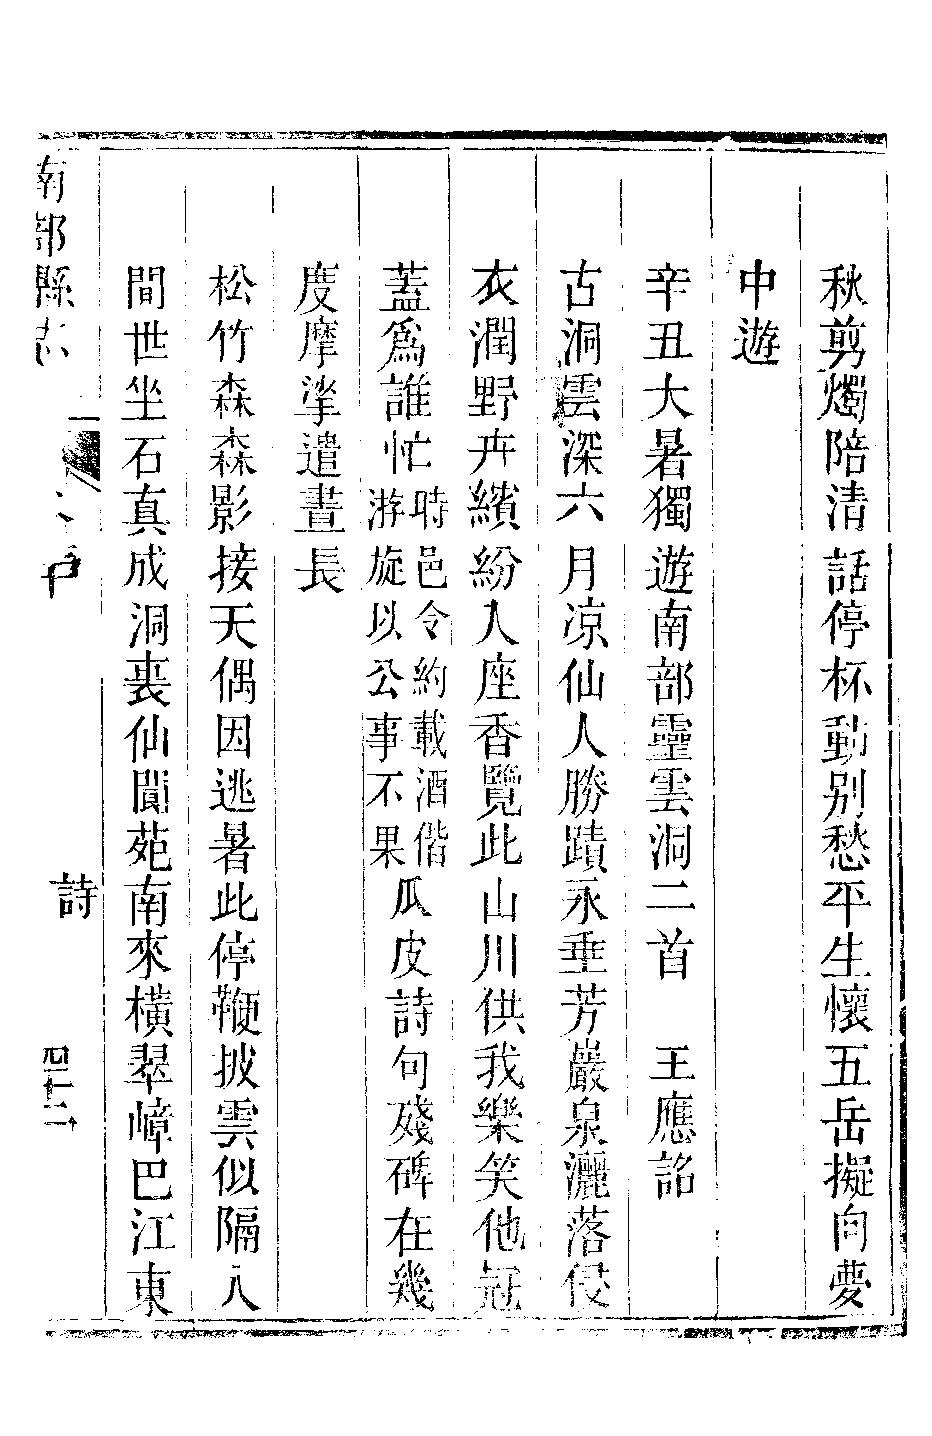 秋剪燭陪清話停杯動别愁平生懷五岳擬向夢
中遊
辛丑大暑獨遊南部靈雲洞二首　王應詔
古洞雲深六月凉仙人勝蹟永垂芳巖泉灑落侵
衣潤野卉繽紛入座香覽此山川供我樂笑他冠
蓋爲誰忙時邑令約載酒偕游旋以公事不果瓜皮詩句殘碑在幾
度摩挲遣晝長
松竹森森影接天偶因逃暑此停鞭披雲似隔人
間世坐石真成洞裏仙閬苑南來橫翠嶂巴江東
南部縣志
詩
四十二